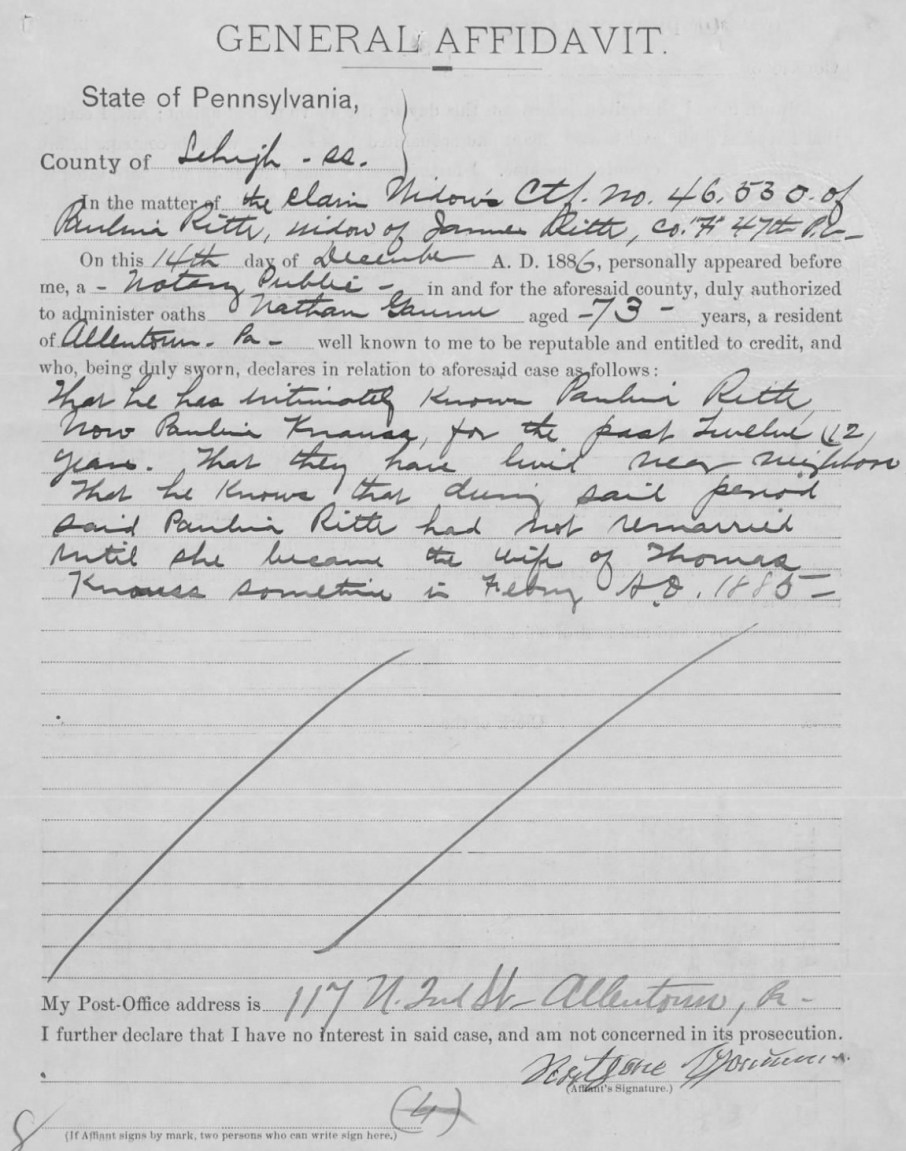 GENERAL AFFIDAVIT.
State of Pennsylvania,
County of Lehigh - ss.
In the matter of the Claim Widow's Ctf. No. 46.530. of
Paulina Ritte, widow of James Ritte, Co. "F" 47th Pa -
On this 14th day of December A. D. 1886, personally appeared before
me, a - Notary Public - in and for the aforesaid county, duly authorized
to administer oaths Nathan aged - 73 - years, a resident
of Allentown - Pa - well known to me to be reputable and entitled to credit, and
who, being duly sworn, declares in relation to aforesaid case as follows:
That he has intimately Known Paulina Ritte,
now Paulina Knauss, for the past Twelve (12)
years. That they have lived near neighbors
That he Knows that during said period
said Paulina Ritte had not remarried
until she became the wife of Thomas
Knauss sometime in Febry A.D. 1885 -
My Post-Office address is 117 N. 2nd St - Allentown, Pa -
I further declare that I have no interest in said case, and am not concerned in its prosecution.
(Affiant's Signature.)
(4)
(If Affiant signs by mark, two persons who can write sign here.)